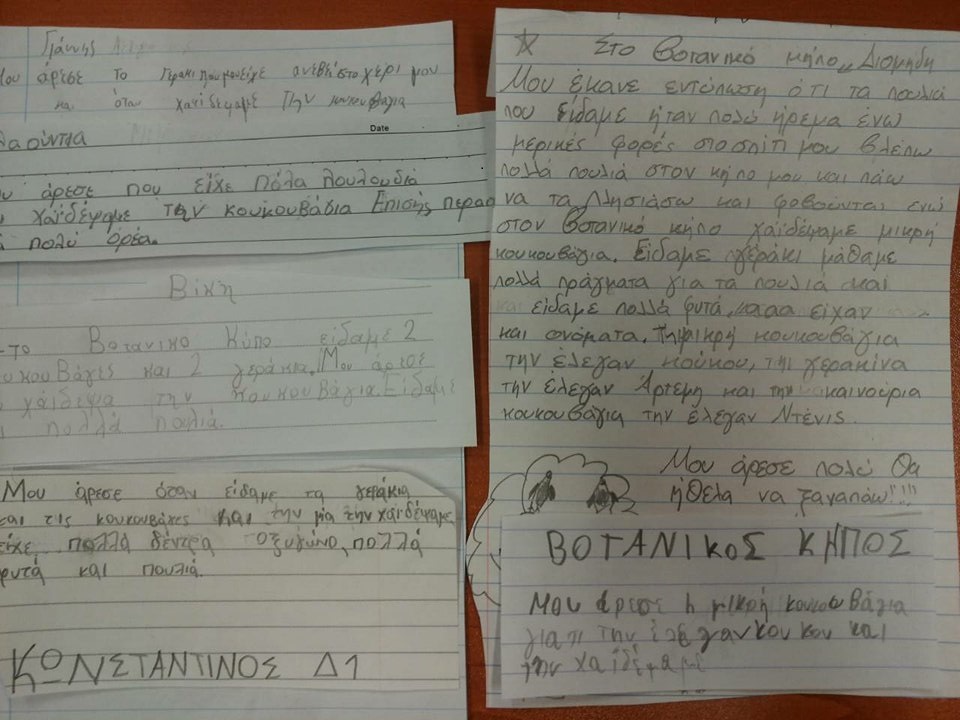 Γιάννης
Μου άρεσε το γεράκι που μου είχε ανεβή στο χέρι μου
και όταν χαϊδεψαμε την κουκουβαγια
Date
άρεσε που είχε πόλα λουλούδια
χαϊδέψαμε την κουκουβάβια Επισής περασ
πολύ ορέα.
Βίκη
Βοτανικο Κύπο είδαμε 2
κουΒάγες και 2 γεράκια. Μου άρεσε
χάιδεψα την κουκουΒάγια. Είδαμε
πολλά πουλιά.
Μου άρεσε όταν είδαμε τα γεράκια
και τις κουκουβάγες και την μία την χαϊδέψαμε
είχε πολλά δέντρα οξυγόνο, πολλά
φυτά και πουλιά.
ΚΩΝΣΤΑΝΤΙΝΟΣ Δ1
Στο Βοτανικό κήπο „Διομήδη
Μου έκανε εντύπωση ότι τα πουλιά
που είδαμε ήταν πολύ ήρεμα ενώ
μερικές φορές στο σπίτι μου βλέπω
πολλά πουλιά στον κήπο μου και πάω
να τα πλησιάσω και φοβούνται ενώ
στον Βοτανικό κήπο χαϊδέψαμε μικρή
κουκουβάγια. Είδαμε γεράκι μάθαμε
πολλά πράγματα για τα πουλιά και
και είδαμε πολλά φυτά, είχαν
και ονόματα. Τη μικρή κουκουβάγια
την έλεγαν κούκου, τη γερακίνα
την έλεγαν Άρτεμη και την καινούρια
κουκουβάγια την έλεγαν Ντένις.
Μου άρεσε πολύ θα
ήθελα να ξαναπάω!!!!
ΒΟΤΑΝΙΚΟΣ ΚΗΠΟΣ
Μου άρεσε η μικρή κουκουβάγια
γιατι την έλεγαν κου κου και
την χαϊδέψαμε